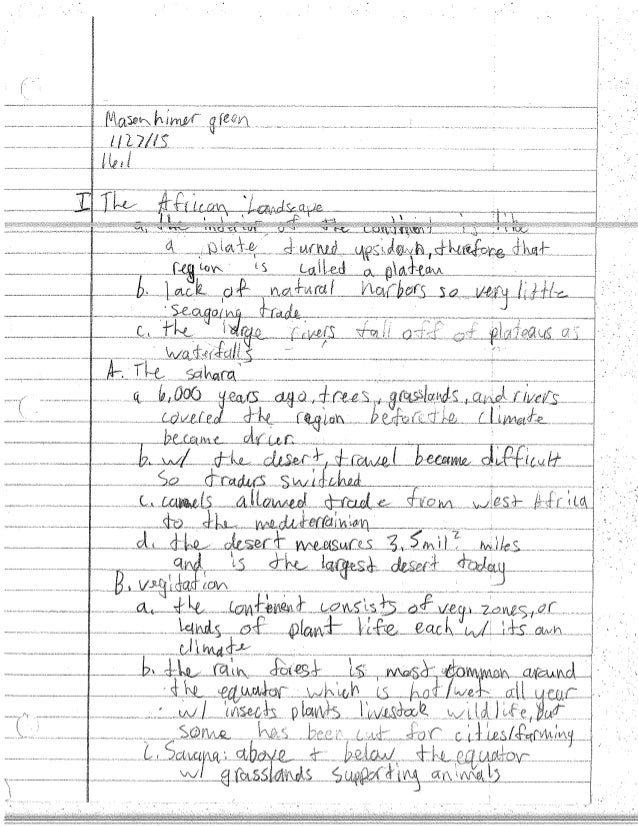 Mason himer green
1127/15
16.1
I The African Landscape
a. the interior of the continent is like
a plate turned upsidown, therefore that
region is called a plateau
b. lack of natural harbors so very little
seagoing trade
c. the large rivers fall off of plateaus as
waterfalls
A. The sahara
a 6,000 years ago, trees, grasslands, and rivers
covered the region before the climate
became drier
b. w/ the desert, travel became difficult
so traders switched
c. camels allowed trade from west Africa
to the mediterrainian
d. the desert measures 3.5 mil² miles
and is the largest desert today
B. vegitation
a. the contenent consists of veg. zones, or
lands of plant life each w/ its own
climate
b. the rain forest is most common around
the equator which is hot/wet all year
w/ insects plants livestock wildlife, but
some has been cut for cities/farming
c. Savana: above + below the equator
w/ grasslands supporting animals